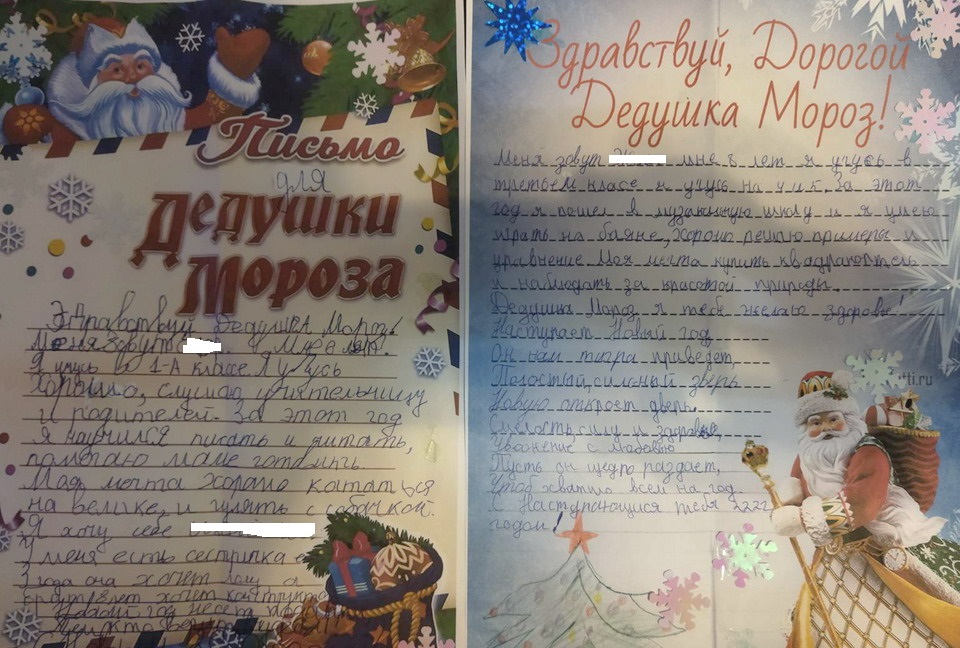 Письмо
для
Дедушки
Мороза
Здравствуй Дедушка Мороз!
Меня зовут
Я учусь во 1-А классе. Я учусь
Хорошо, слушаю учительницу
и родителей. За этот год
я научился писать и читать,
помогаю маме готовить.
Моя мечта хорошо кататься
на велике, и гулять с собачкой.
Я хочу себе
У меня есть сестричка
3 года она хочет лол а
хочет конструктор
Новый год
Здравствуй, Дорогой
Дедушка Мороз!
Меня зовут мне 8 лет я учусь в
третьем класе и учусь на за этот
год я пошел в музыкнную школу и я умею
играть на баяне, хорошо решаю примеры и
уравнение Моя мечта купить квадракоптель
и наблюдать за красотой природы.
Дедушка Мороз я тебе желаю здоровы!
Наступает Новый год
Он нам тигра приведет,
Полостый, сильный зверь
Новую откроет дверь.
Смелость, силу и здоровье,
Уважение с любовью
Пусть он щедро раздает,
Чтоб хватило всем на год
С Наступающися тебя 2222
годом!
ti.ru